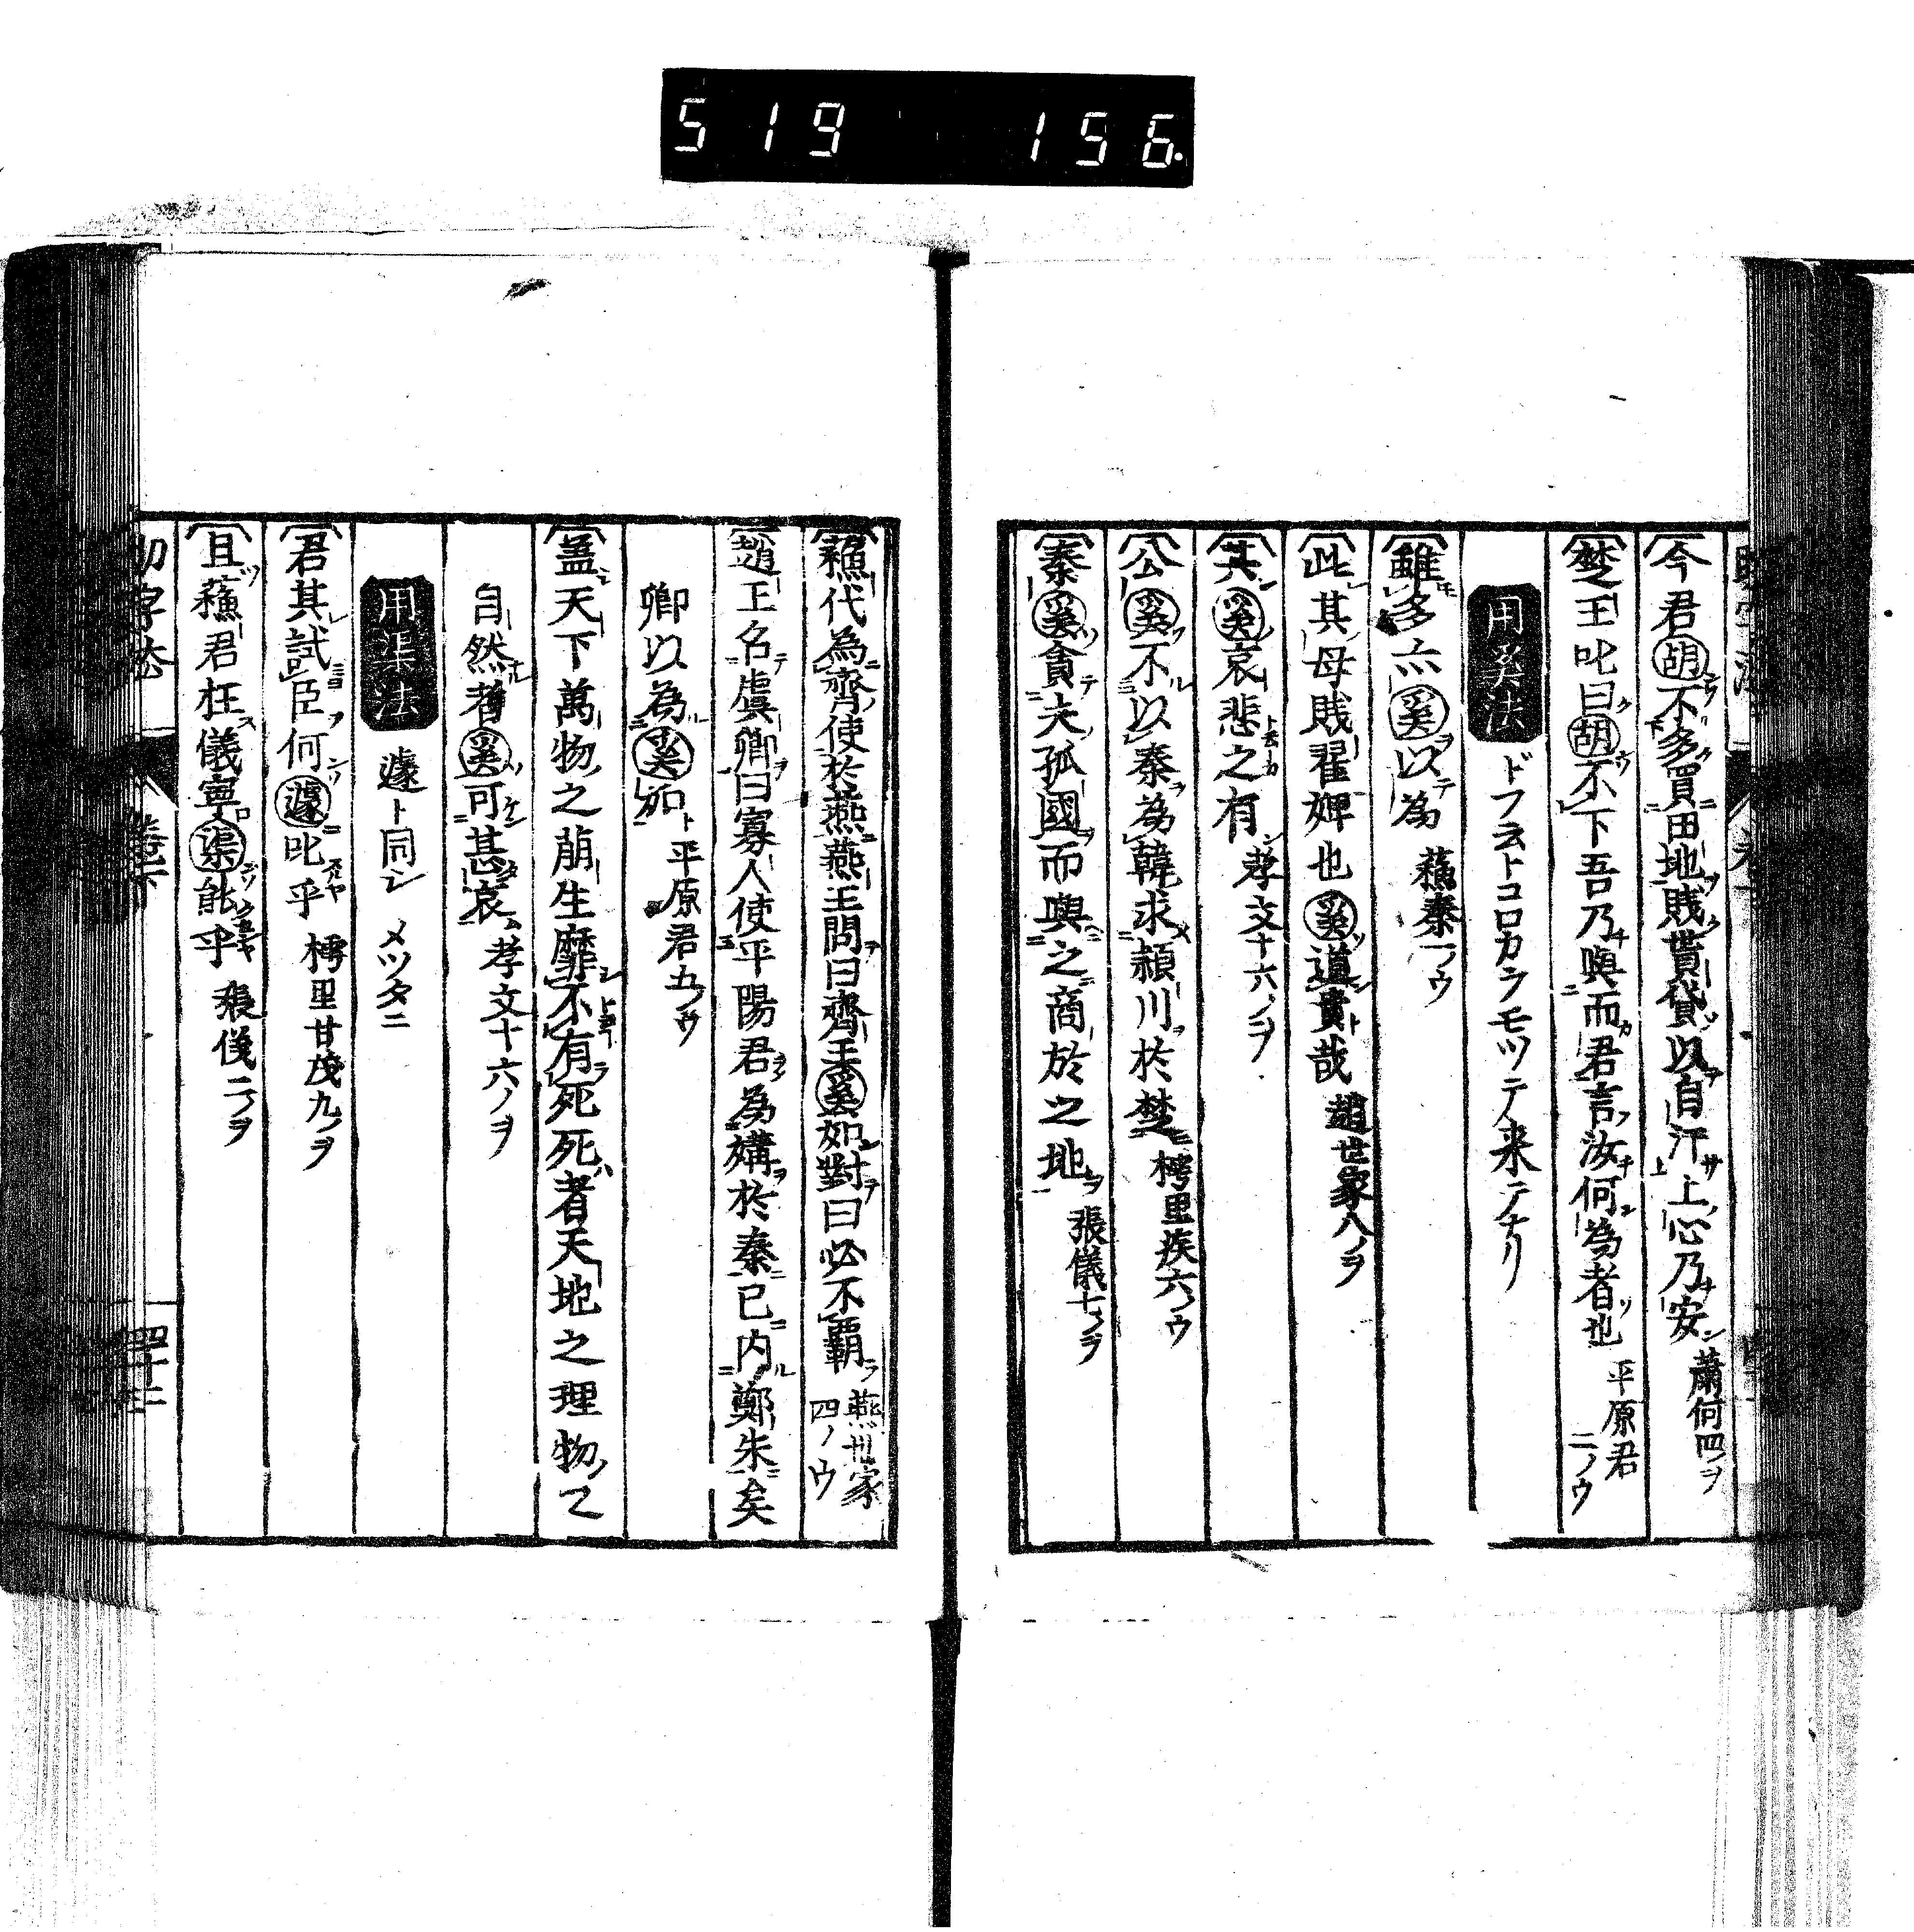 519 156
今君胡不多買田地賤貰貸以自汙上心乃安 蕭何四ノヲ
楚王叱曰胡不下吾乃與而君言汝何為者也 平原君二ノウ
用奚法 ドフ云トコロカラモツテ来テナリ
雖多亦奚以為 蘓秦一ノウ
此其母賎翟婢也奚道貴哉 趙世家八ノヲ
其奚哀悲之有 孝文十六ノヲ
公奚不以秦為韓求頴川於楚 樗里疾六ノウ
秦奚貪夫孤國而與之商於之地 張儀七ノヲ
蘓代為齊使於燕燕王問曰齊王奚如對曰必不覇 燕世家四ノウ
趙王名虞卿曰寡人使平陽君為媾於秦已内鄭朱矣
卿以為奚如 平原君五ノウ
盖天下萬物之萠生靡不有死死者天地之理物之
自然者奚可甚哀 孝文十六ノヲ
用渠法 遽ト同シ メツタニ
君其試臣何遽叱乎 樗里甘茂九ノヲ
且蘓君在儀寧渠能乎 張儀二ノヲ
四十二